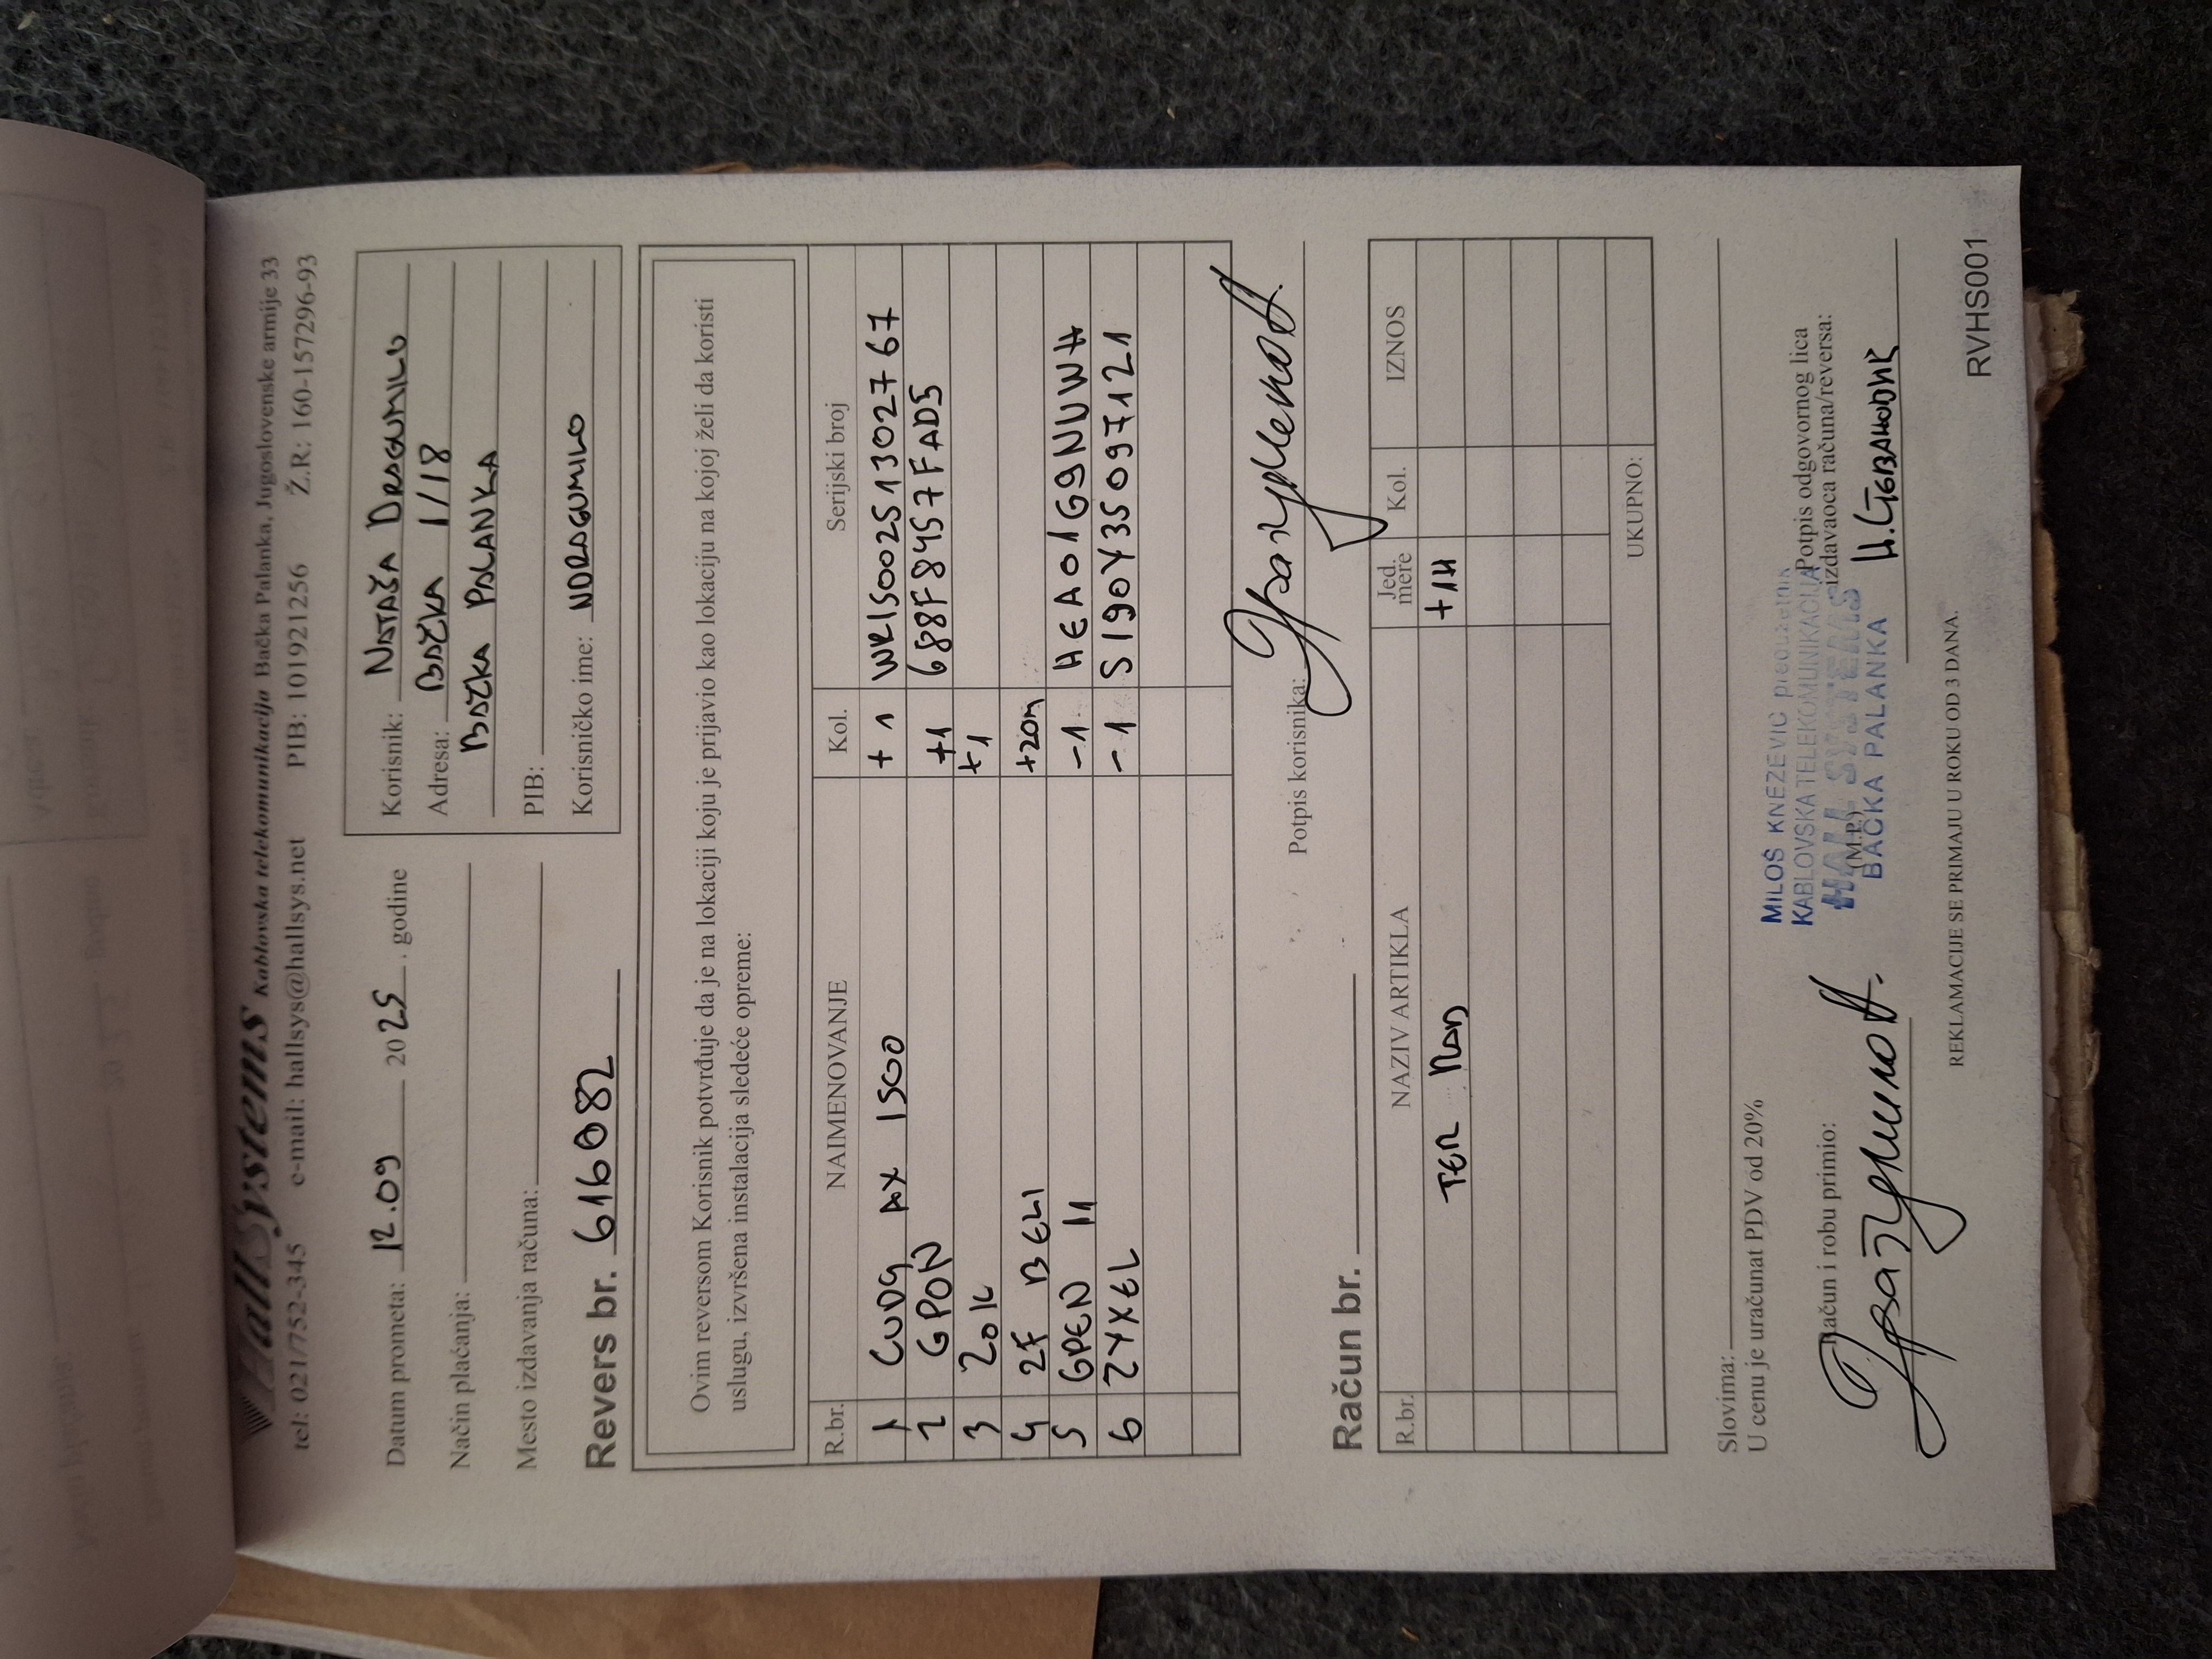 HallSystems Kablovska telekomunikacija Bačka Palanka, Jugoslovenske armije 33
tel: 021/752-345 e-mail: hallsys@hallsys.net PIB: 101921256 Ž.R.: 160-157296-93
Datum prometa: 12.09 2025. godine
Način plaćanja:
Mesto izdavanja računa:
Korisnik: NATAŠA DRAGUMILO
Adresa: BAČKA 1/18
BAČKA PALANKA
PIB:
Korisničko ime: NDRAGUMILO
Revers br. 616082
Ovim reversom Korisnik potvrđuje da je na lokaciji koju je prijavio kao lokaciju na kojoj želi da koristi
uslugu, izvršena instalacija sledeće opreme:
R.br. NAIMENOVANJE Kol. Serijski broj
1 CUDY AX 1500 +1 WR1500251302767
2 GPON +1 688F8457FAD5
3 ZOK +1
4 2F BELI +20m
5 GPEN 11 -1 HEA01G9NUWH
6 ZYXEL -1 S190Y35097121
Potpis korisnika:
Račun br.
R.br. NAZIV ARTIKLA Jed. mere Kol. IZNOS
ТЕР МАЂ +1H
UKUPNO:
Slovima:
U cenu je uračunat PDV od 20%
Račun i robu primio:
MILOŠ KNEZEVIC preduzetnik
KABLOVSKA TELEKOMUNIKACIJA
HALL SYSTEMS
(M.P.)
BAČKA PALANKA
Potpis odgovornog lica
izdavaoca računa/reversa:
REKLAMACIJE SE PRIMAJU U ROKU OD 3 DANA.
RVHS001